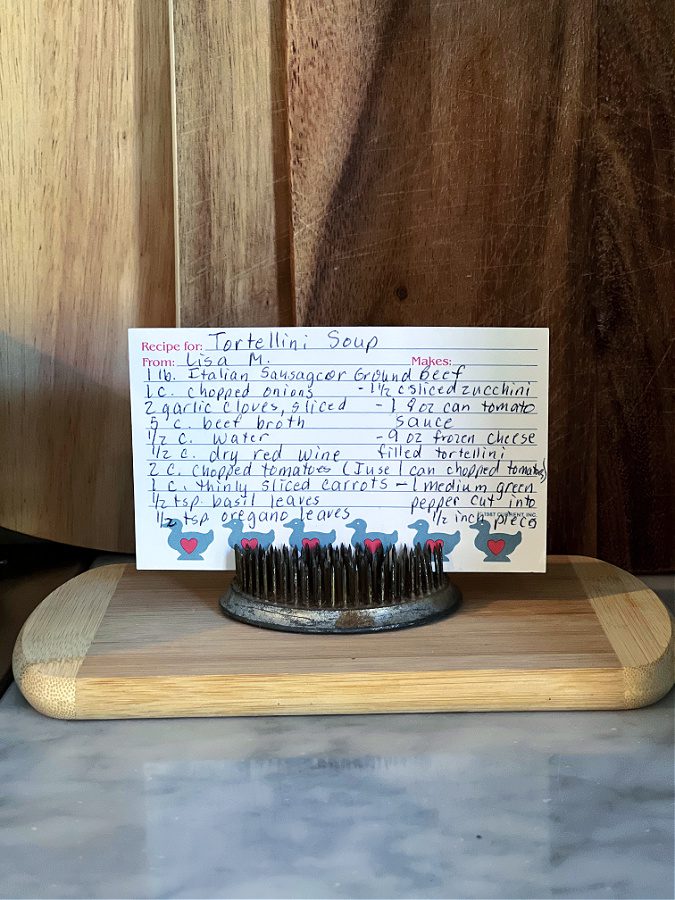 Recipe for: Tortellini Soup
From: Lisa M. Makes:
1 lb. Italian Sausage or Ground Beef
1 c. chopped onions - 1 1/2 c sliced zucchini
2 garlic cloves, sliced - 1 8 oz can tomato
5 c. beef broth sauce
1/2 c. water - 9 oz frozen cheese
1/2 c. dry red wine filled tortellini
2 c. chopped tomatoes (I use 1 can chopped tomatoes)
1 c. thinly sliced carrots - 1 medium green
1/2 tsp. basil leaves pepper cut into
1/2 tsp. oregano leaves 1/2 inch piece
©1987 CURRENT, INC.